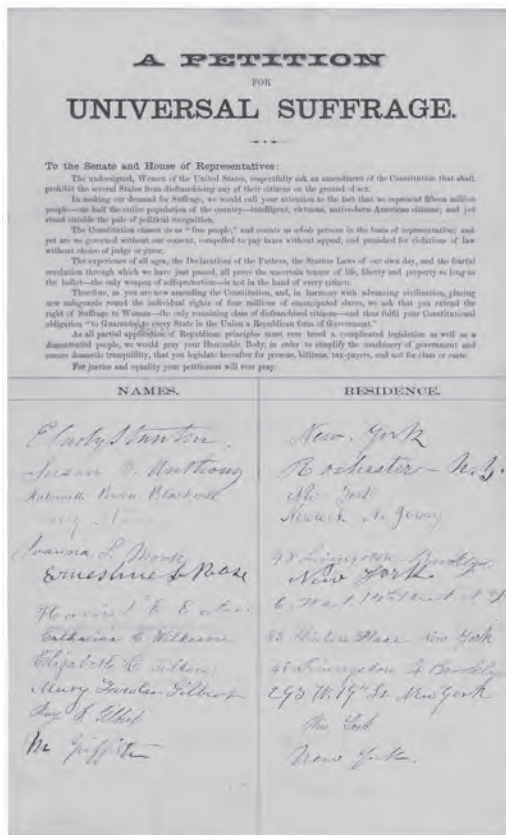 A PETITION
FOR
UNIVERSAL SUFFRAGE.
To the Senate and House of Representatives:
The undersigned, Women of the United States, respectfully ask an amendment of the Constitution that shall
prohibit the several States from disfranchising any of their citizens on the ground of sex.
In making our demand for Suffrage, we would call your attention to the fact that we represent fifteen million
people—one half the entire population of the country—intelligent, virtuous, native-born American citizens; and yet
stand outside the pale of political recognition.
The Constitution classes us as "free people," and counts us whole persons in the basis of representation; and
yet are we governed without our consent, compelled to pay taxes without appeal, and punished for violations of law
without choice of judge or juror.
The experience of all ages, the Declarations of the Fathers, the Statute Laws of our own day, and the fearful
revolution through which we have just passed, all prove the uncertain tenure of life, liberty and property so long as
the ballot—the only weapon of self-protection—is not in the hand of every citizen.
Therefore, as you are now amending the Constitution, and, in harmony with advancing civilization, placing
new safeguards round the individual rights of four millions of emancipated slaves, we ask that you extend the
right of Suffrage to Woman—the only remaining class of disfranchised citizens—and thus fulfil your Constitutional
obligation "to Guarantee to every State in the Union a Republican form of Government."
As all partial application of Republican principles must ever breed a complicated legislation as well as a
discontented people, we would pray your Honorable Body, in order to simplify the machinery of government and
ensure domestic tranquillity, that you legislate hereafter for persons, citizens, tax-payers, and not for class or caste.
For justice and equality your petitioners will ever pray.
NAMES. RESIDENCE.
E Cady Stanton. New. York
Susan B. Anthony Rochester - N.Y.
Antoinette Brown Blackwell New York
Newark N. Jersey
Joanna S. Morse 48 Livingston Brooklyn
Ernestine L Rose New York
Harriet E. Eaton 6. West 14th Street N.Y
Catharine C Wilkeson 83 Clinton Place New York
Elizabeth R. Tilton 48 Livingston St Brooklyn
Mary Fowler Gilbert 293 W. 19th St New York
New York
M Griffith New York.